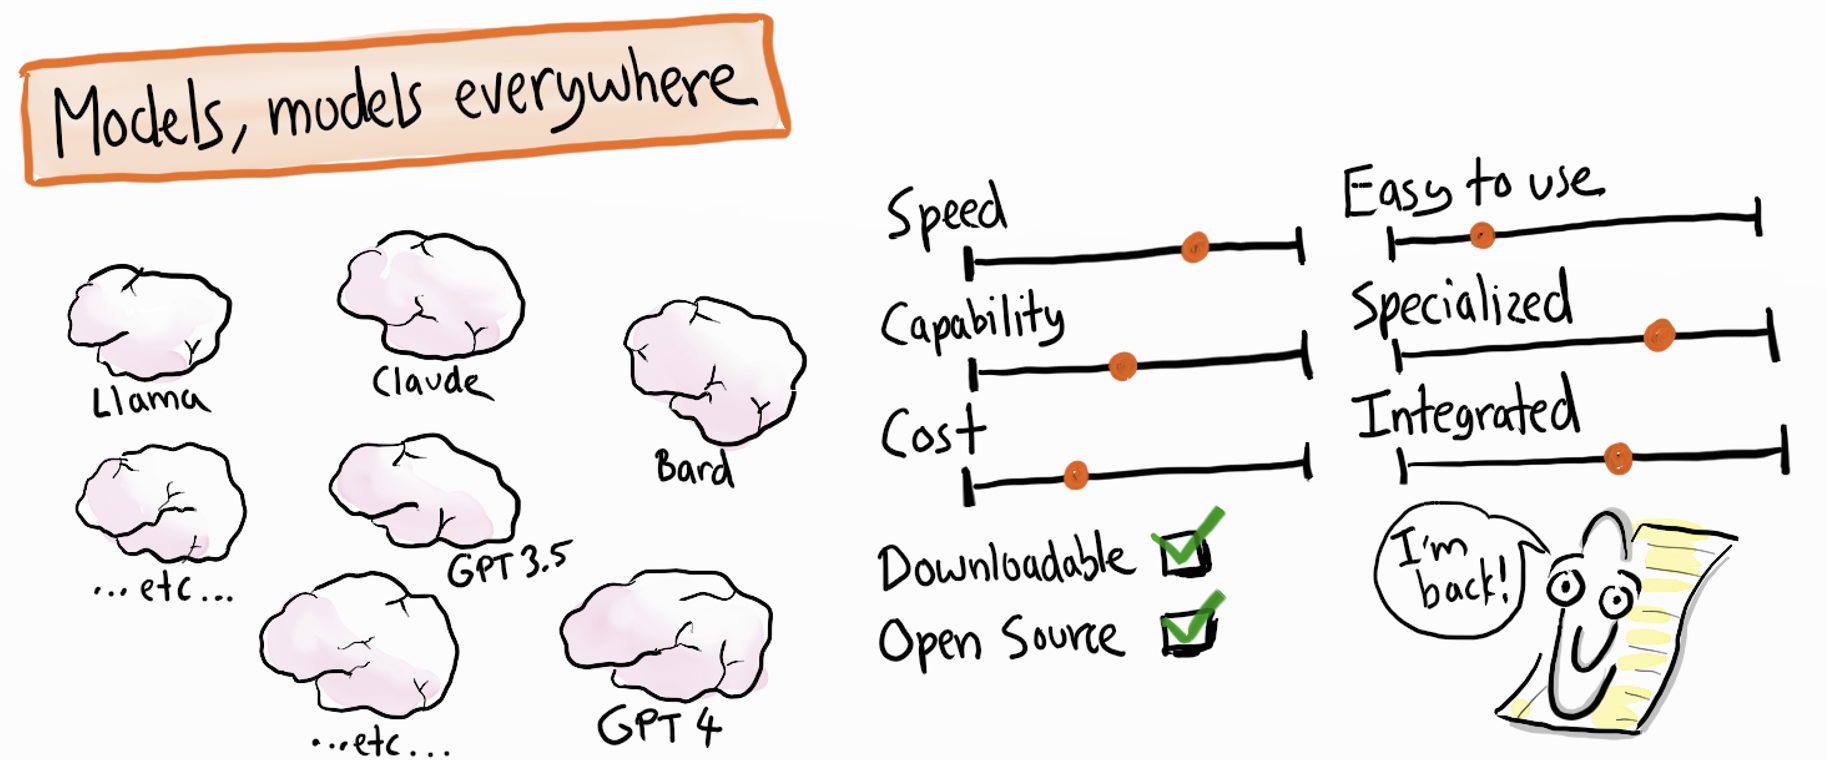 Models, models everywhere
Llama
Claude
Bard
...etc...
GPT 3.5
...etc...
GPT 4
Speed
Capability
Cost
Downloadable
Open Source
Easy to use
Specialized
Integrated
I'm
back!